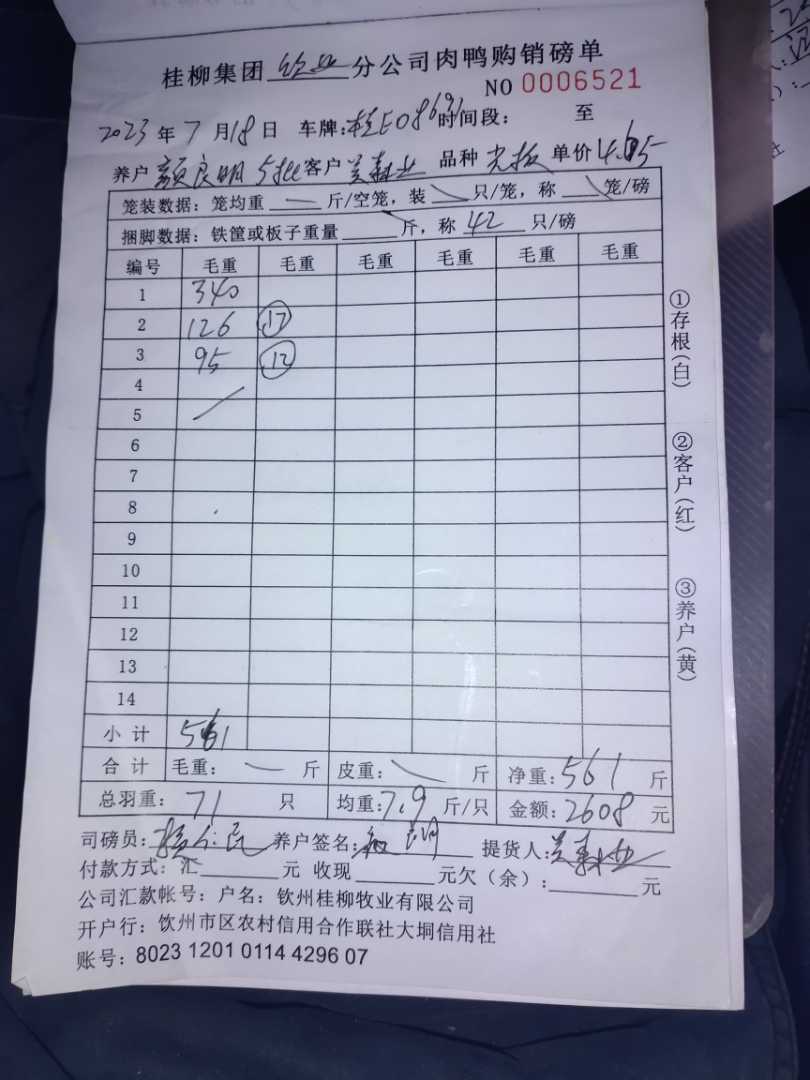 桂柳集团 钦州 分公司肉鸭购销磅单
NO 0006521
2023 年 7 月 18 日 车牌: 桂E08631 时间段: 至
养户 良明 5批 客户 品种 光板 单价 4.65
笼装数据: 笼均重 — 斤/空笼, 装 \ 只/笼, 称 \ 笼/磅
捆脚数据: 铁筐或板子重量 \ 斤, 称 42 只/磅
编号 毛重 毛重 毛重 毛重 毛重 毛重
1 340
2 126 17
3 95 12
4
5 /
6
7
8
9
10
11
12
13
14
小计 561
合计 毛重: — 斤 皮重: \ 斤 净重: 561 斤
总羽重: 71 只 均重: 7.9 斤/只 金额: 2608 元
司磅员: 养户签名: 提货人:
付款方式: 汇 元 收现 元欠(余): 元
公司汇款帐号: 户名: 钦州桂柳牧业有限公司
开户行: 钦州市区农村信用合作联社大垌信用社
账号: 8023 1201 0114 4296 07
①存根(白)
②客户(红)
③养户(黄)